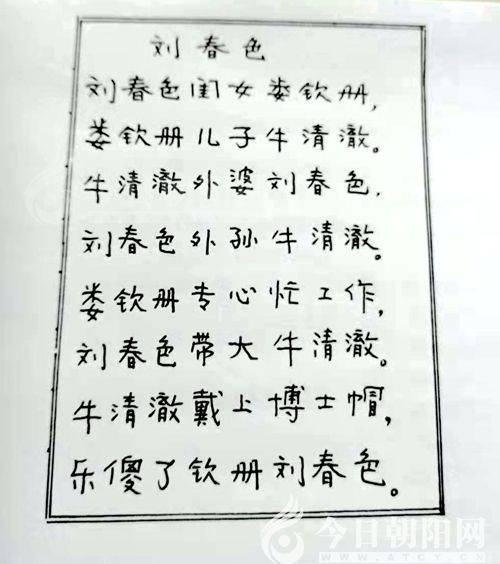 刘春色
刘春色闺女娄钦册，
娄钦册儿子牛清澈。
牛清澈外婆刘春色，
刘春色外孙牛清澈。
娄钦册专心忙工作，
刘春色带大牛清澈。
牛清澈戴上博士帽，
乐傻了钦册刘春色。
今日朝阳网
WWW.ATCY.CN